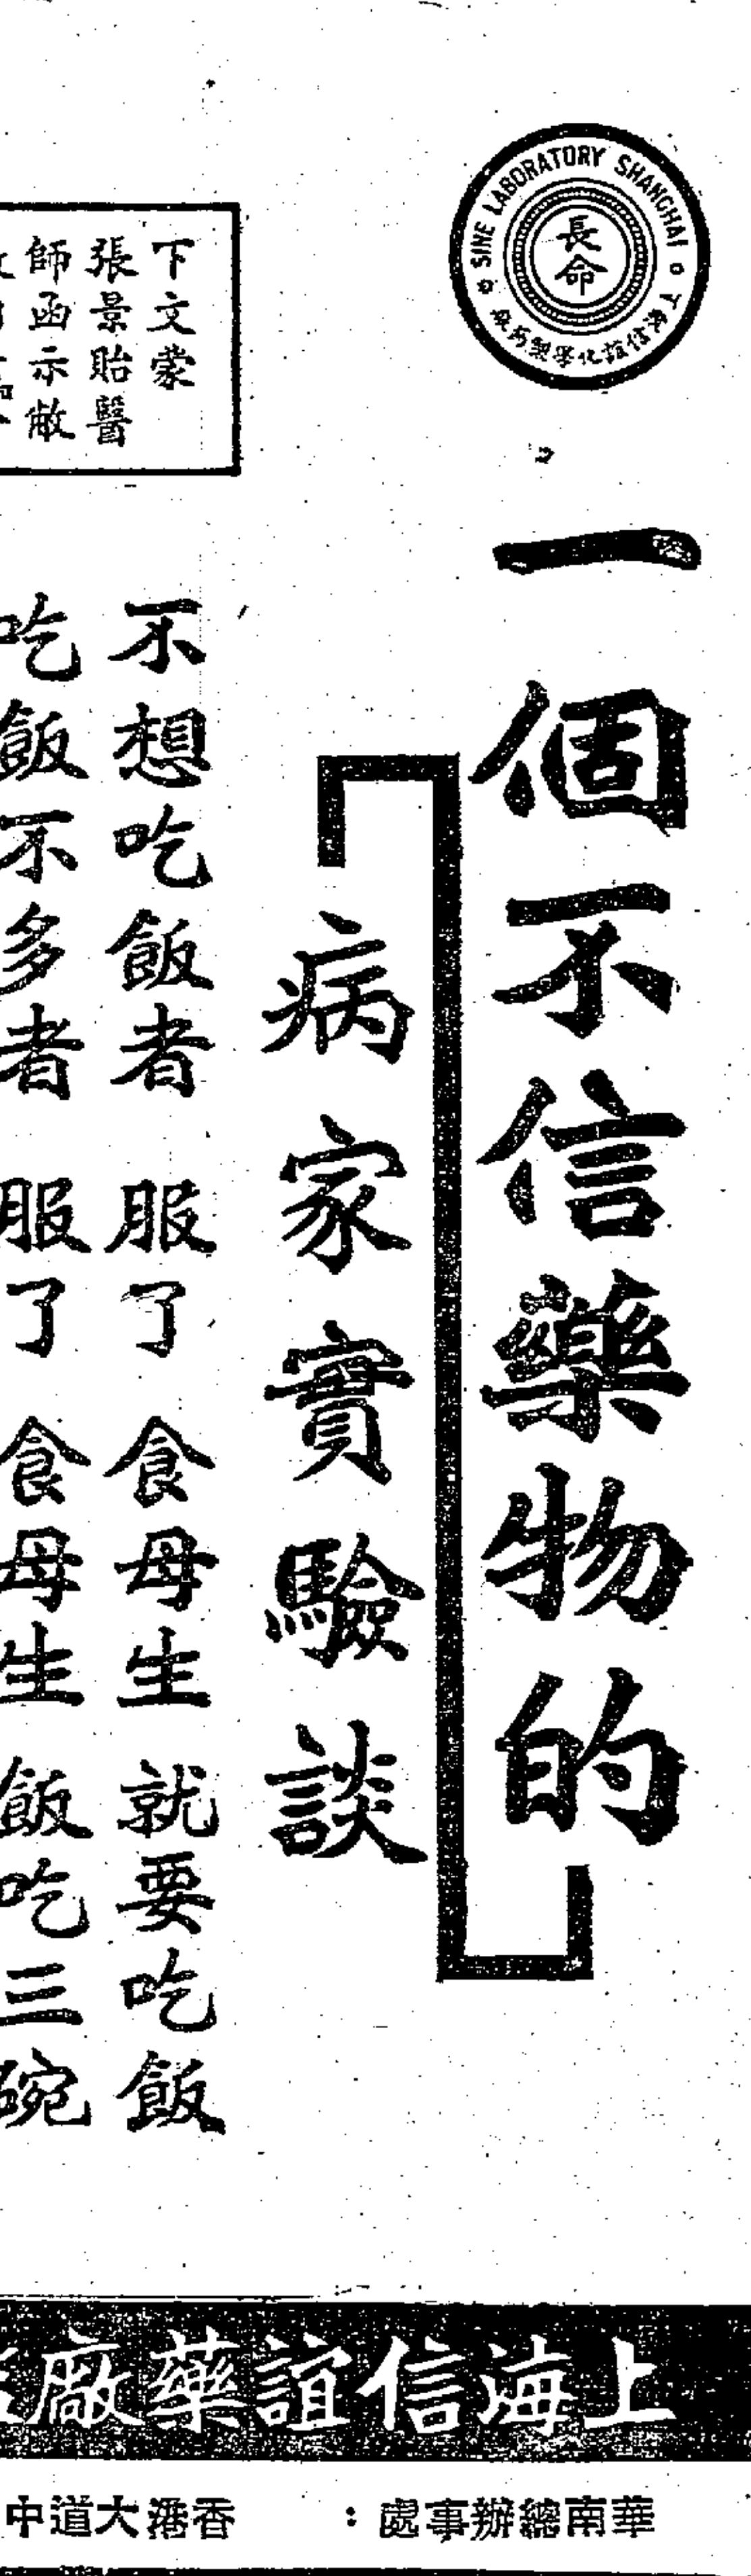 SINE LABORATORY SHANGHAI
長命
一個不信藥物的
病家實驗談
下文蒙
張景貽醫
師函示敝
不想吃飯者 服了 食母生 就要吃飯
吃飯不多者 服了 食母生 飯吃三碗
上海信誼藥廠
華南總辦事處：香港大道中